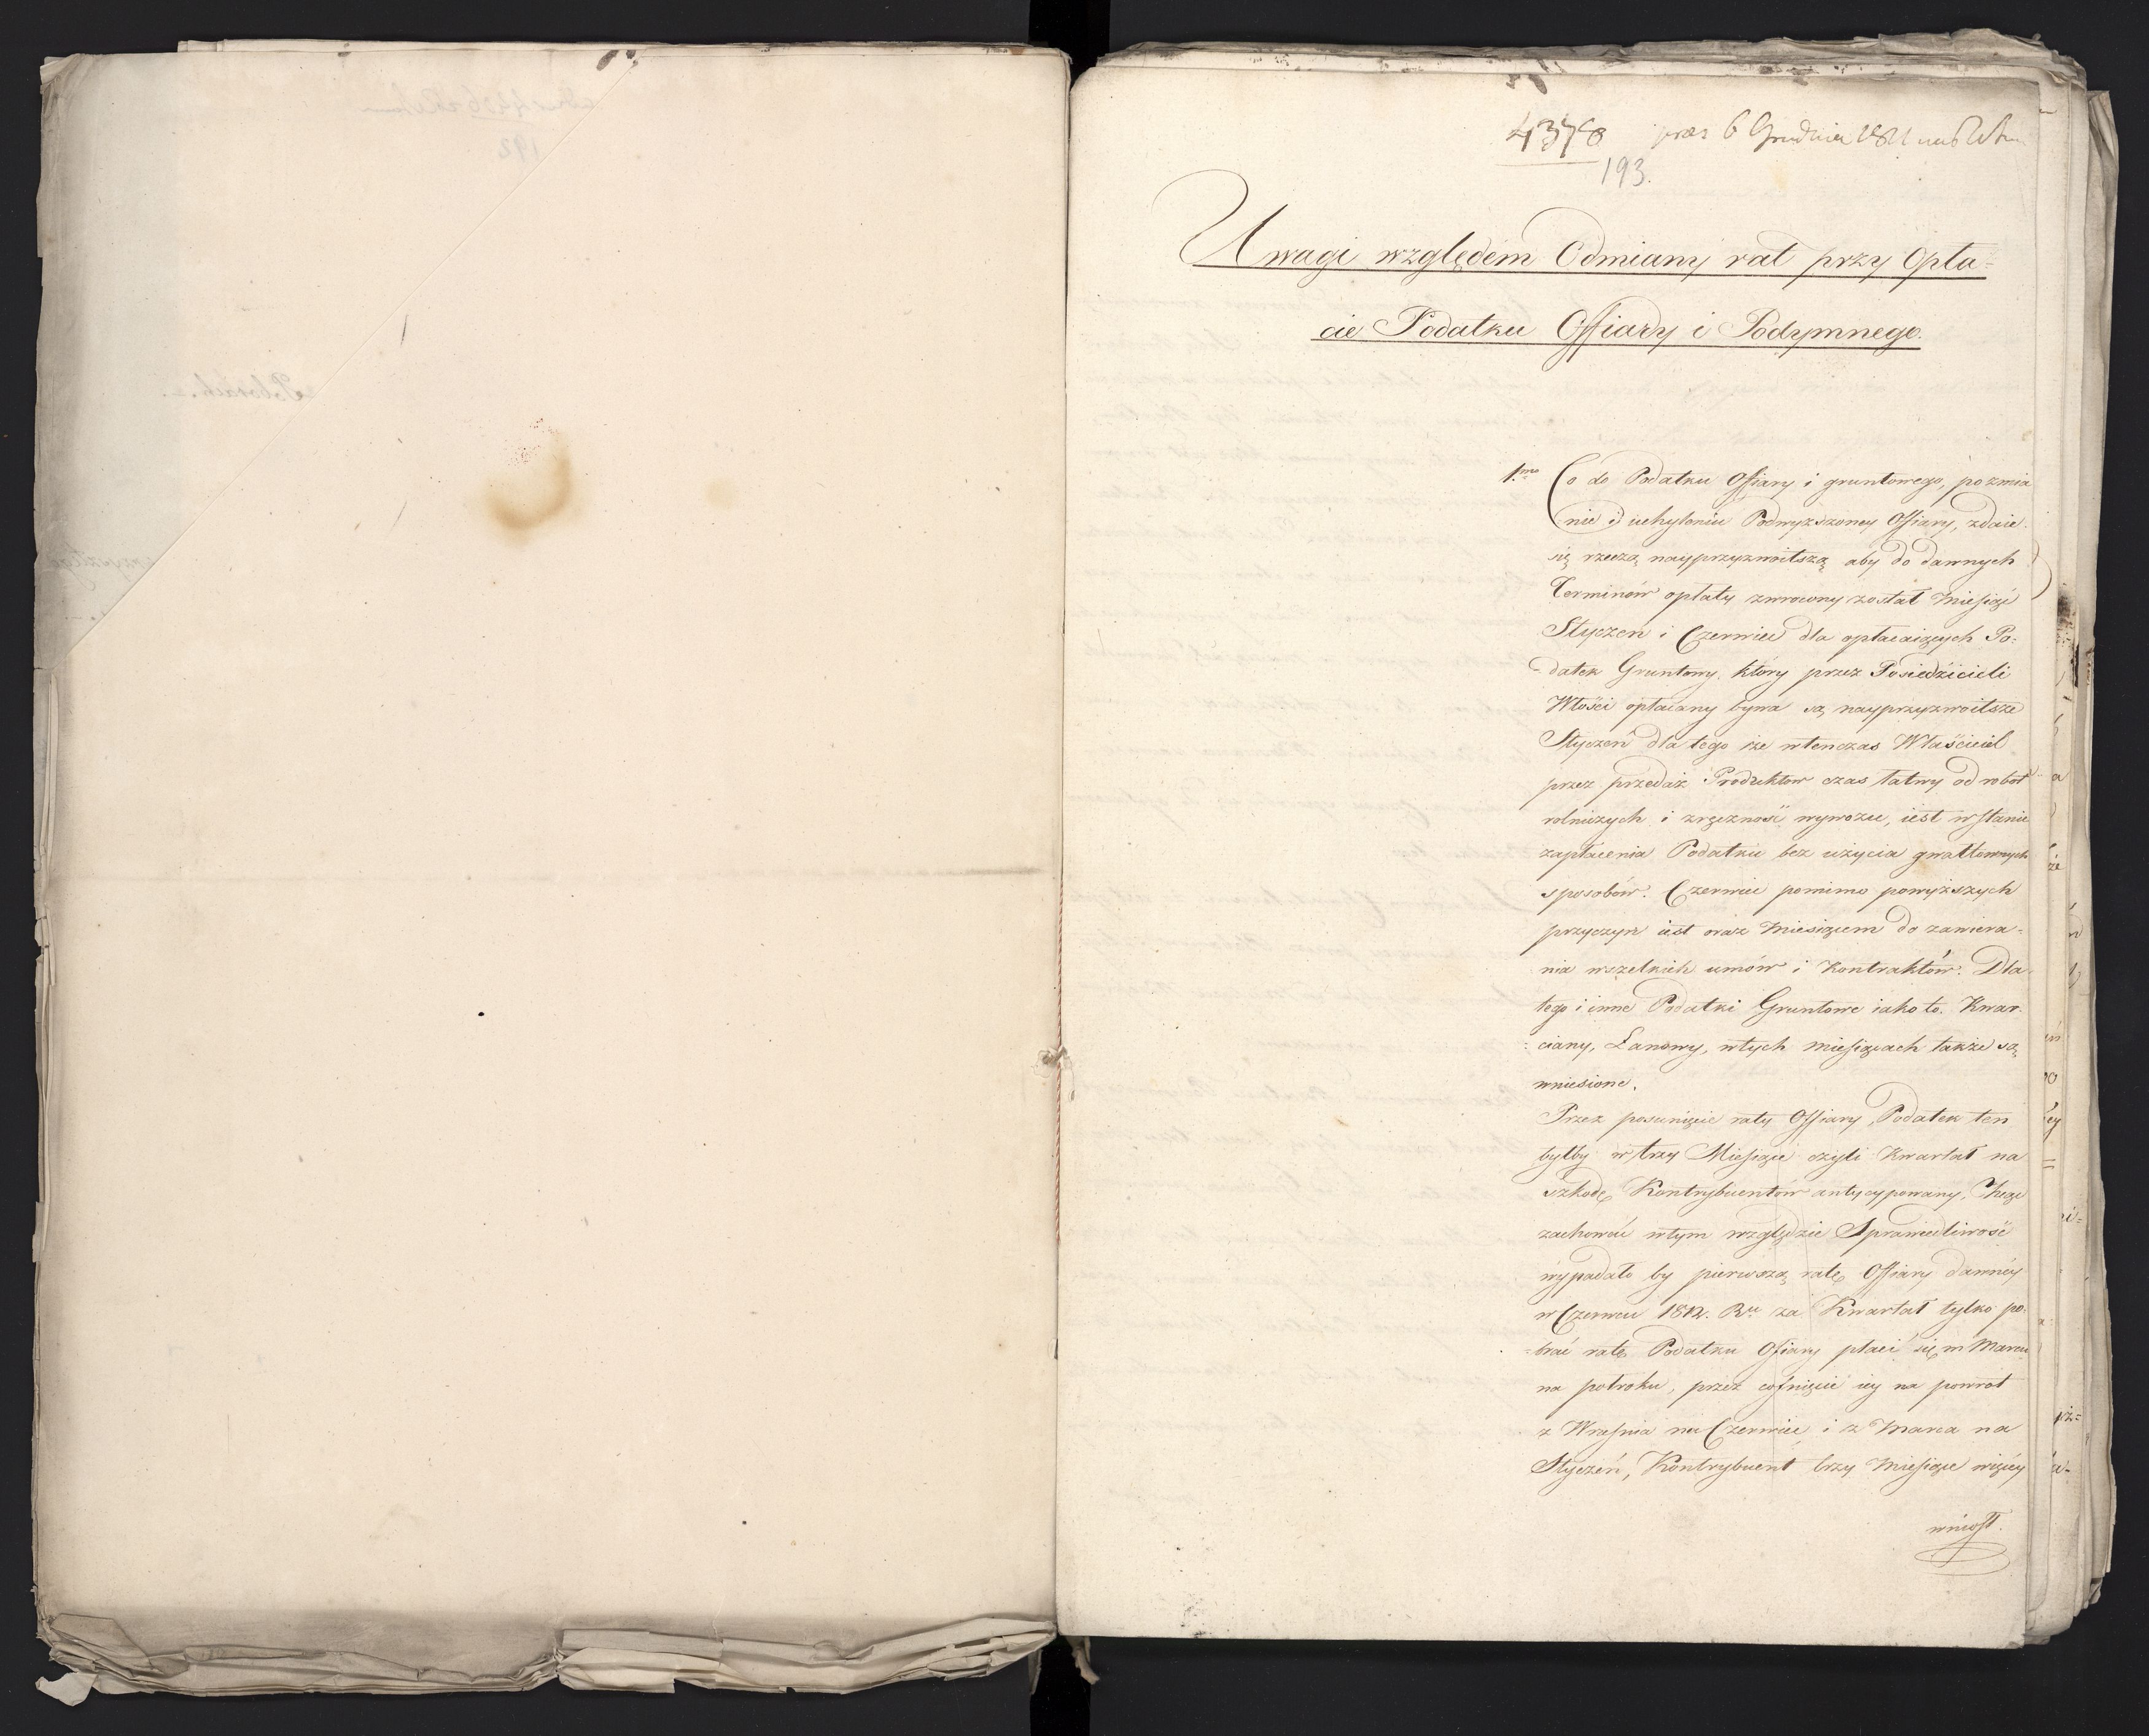 4378 præs 6 Grudnia 1811
193.
Uwagi względem Odmiany rat przy Opła=
cie Podatku Offiary i Podymnego.
1mo Co do Podatku Offiary i gruntowego, po zmia
nie i uchyleniu Podwyższoney Offiary, zdaie
się rzeczą nayprzyzwoitszą aby do dawnych
Terminów opłaty zwrocony został Miesiąc
Styczeń i Czerwiec dla opłacaiących Po=
datek Gruntowy, który przez Posiedzicieli
Włości opłacany bywa są nayprzyzwoitsze
Styczeń dla tego że wtenczas Właściciel
przez przedaż Produktow czas łatwy od robót
rolniczych i zręczność wywozu, iest w stanie
zapłacenia Podatku bez użycia gwałtownych
sposobów. Czerwiec pomimo powyższych
przyczyn iest oraz Miesiącem do zawiera=
nia wszelkich umów i Kontraktów. Dla
tego i inne Podatki Gruntowe iako to. Kwar=
ciany, Łanowy, w tych miesiącach także są
wniesione.
Przez posunięcie raty Offiary, Podatek ten
byłby w trzy Miesiące czyli Kwartał na
szkodę Kontrybuentów antycypowany. Chcąc
zachować w tym względzie Sprawiedliwość
wypadało by pierwszą ratę Offiary dawnéy
w Czerwcu 1812. Ru za Kwartał tylko po=
brać ratę Podatku Ofiary płaci się w Marcu
na połroku, przez cofnięcie iey na powrót
z Wrzesnia na Czerwiec i z Marca na
Styczeń, Kontrybuent trzy Miesiące więcéy
wniosł.